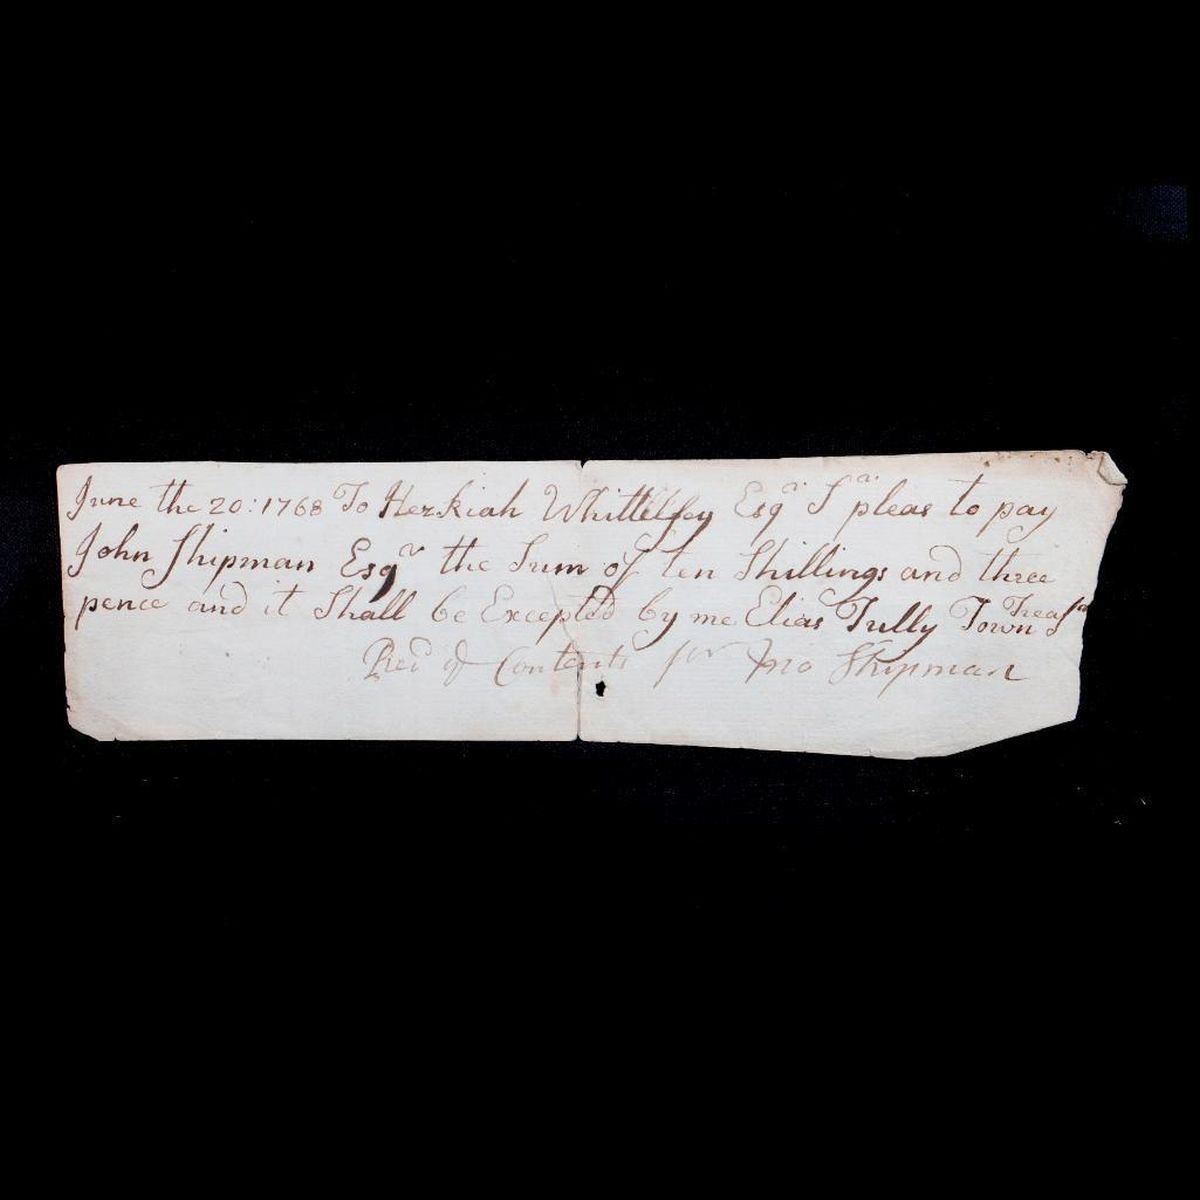 June the 20: 1768 To Hezkiah Whittelsey Esqr Sr pleas to pay
John Shipman Esqr the Sum of ten Shillings and three
pence and it Shall be Excepted by me Elias Tully Town Treasr
Recd ye Contents pr Jno Shipman